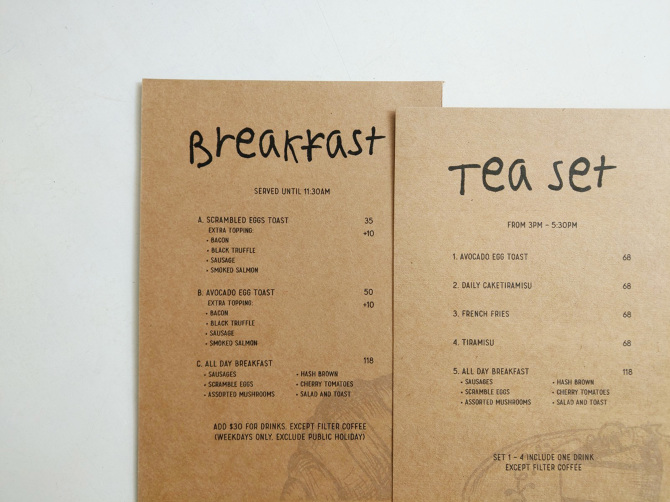 Breakfast
SERVED UNTIL 11:30AM
A. SCRAMBLED EGGS TOAST 35
EXTRA TOPPING: +10
• BACON
• BLACK TRUFFLE
• SAUSAGE
• SMOKED SALMON
B. AVOCADO EGG TOAST 50
EXTRA TOPPING: +10
• BACON
• BLACK TRUFFLE
• SAUSAGE
• SMOKED SALMON
C. ALL DAY BREAKFAST 118
• SAUSAGES • HASH BROWN
• SCRAMBLE EGGS • CHERRY TOMATOES
• ASSORTED MUSHROOMS • SALAD AND TOAST
ADD $30 FOR DRINKS. EXCEPT FILTER COFFEE
(WEEKDAYS ONLY. EXCLUDE PUBLIC HOLIDAY)
Tea set
FROM 3PM - 5:30PM
1. AVOCADO EGG TOAST 68
2. DAILY CAKETIRAMISU 68
3. FRENCH FRIES 68
4. TIRAMISU 68
5. ALL DAY BREAKFAST 118
• SAUSAGES • HASH BROWN
• SCRAMBLE EGGS • CHERRY TOMATOES
• ASSORTED MUSHROOMS • SALAD AND TOAST
SET 1 - 4 INCLUDE ONE DRINK
EXCEPT FILTER COFFEE